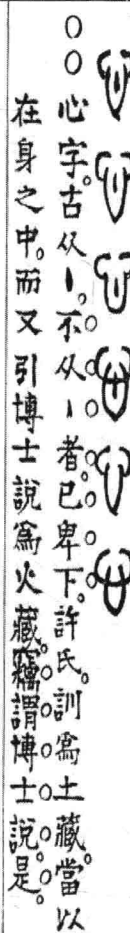 心字。古从丨。不从丨者。已卑下。許氏。訓爲土藏。當以
在身之中。而又引博士說爲火藏。竊謂博士說是。